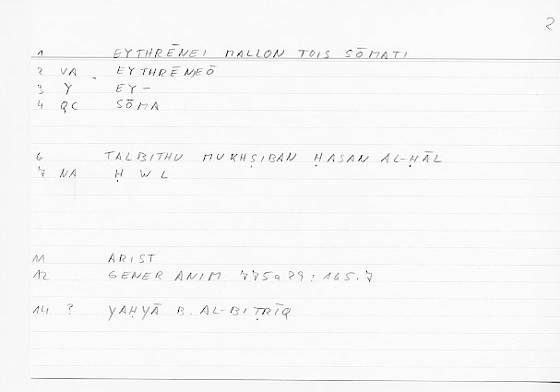 2
1 EYTHRĒNEI MALLON TOIS SŌMATI
2 VA EYTHRĒNEŌ
3 Y EY-
4 QC SŌMA
6 TALBITHU MUKHṢIBAN ḤASAN AL-ḤĀL
7 NA Ḥ W L
11 ARIST
12 GENER ANIM 775a29:165.7
14 ? YAḤYĀ B. AL-BIṬRĪQ